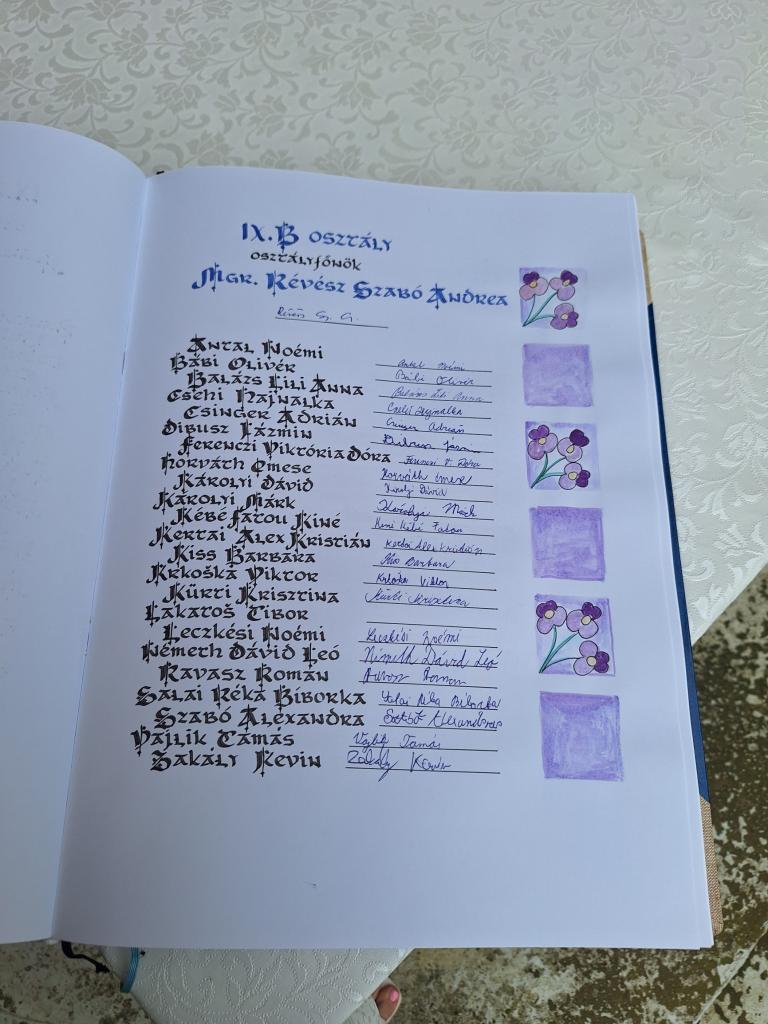 IX.B OSZTÁLY
OSZTÁLYFŐNÖK
MGR. RÉVÉSZ SZABÓ ANDREA
Révész Sz. A.
ANTAL NOÉMI Antal Noémi
BÁBI OLIVÉR Bábi Olivér
BALÁZS LILI ANNA Balázs Lili Anna
CSEHI HAJNALKA Csehi Hajnalka
CSINGER ADRIÁN Csinger Adrián
DIBUSZ JÁZMIN Dibusz Jázmin
FERENCZI VIKTÓRIA DÓRA Ferenczi V. Dóra
HORVÁTH EMESE Horváth Emese
KÁROLYI DÁVID Károlyi Dávid
KÁROLYI MÁRK Károlyi Márk
KÉBÉ FATOU KINÉ Kiné Kébé Fatou
KERTAI ALEX KRISTIÁN Kertai Alex Krisztián
KISS BARBARA Kiss Barbara
KRKOŠKA VIKTOR Krkoška Viktor
KÜRTI KRISZTINA Kürti Krisztina
LAKATOŠ TIBOR
LECZKÉSI NOÉMI Leczkési Noémi
NÉMETH DÁVID LEÓ Németh Dávid Leó
RAVASZ ROMÁN Roman
SALAI RÉKA BÍBORKA Salai Réka Bíborka
SZABÓ ALEXANDRA Szabó Alexandra
VAJLIK TAMÁS Vajlik Tamás
ZAKÁLY KEVIN Zakály Kevin